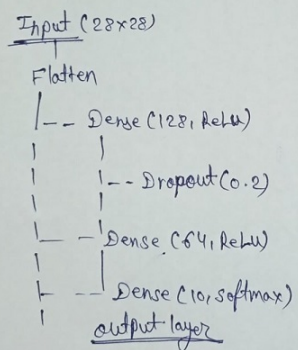 Input (28×28)
Flatten
Dense (128, ReLu)
Dropout (0.2)
Dense (64, ReLu)
Dense (10, softmax)
output layer